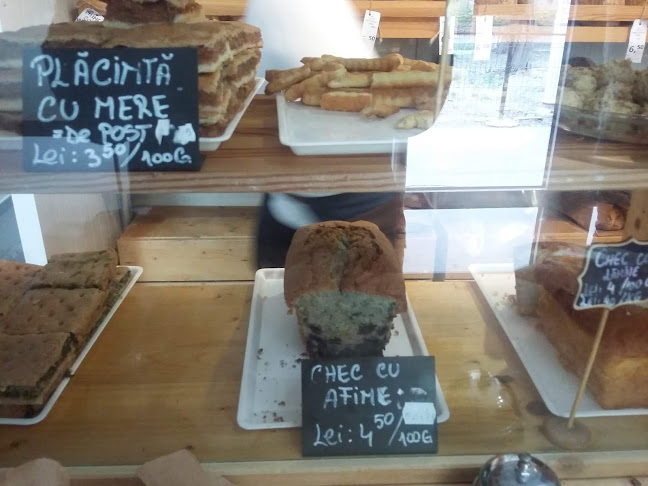 PLĂCINTĂ
CU MERE
=DE POST
Lei: 3 50/100G
CHEC CU
AFINE:
Lei: 4 50/100G
CHEC CU
Lei: 4/100G